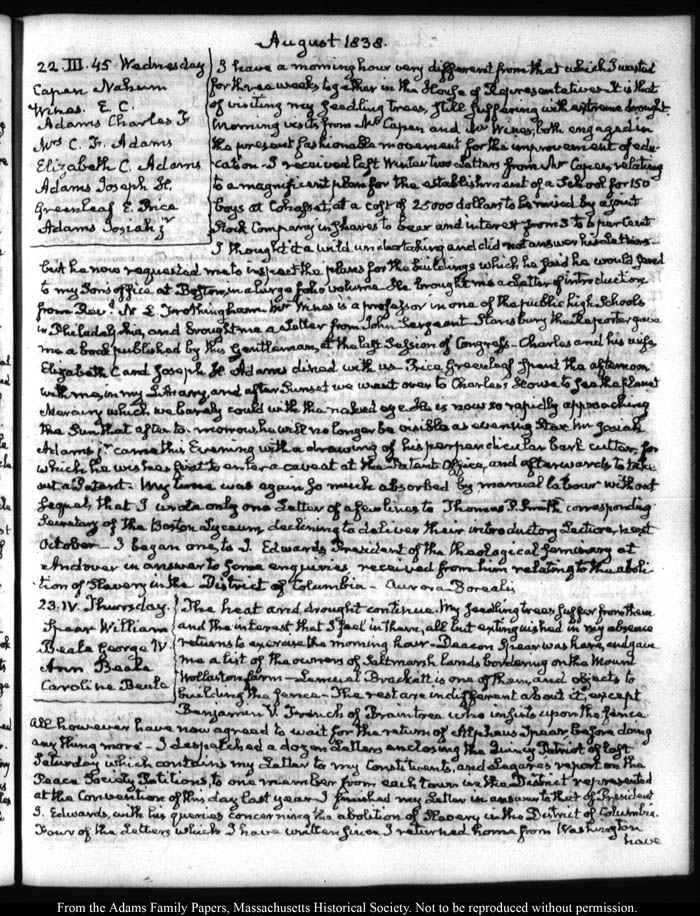 August 1838.
22. III. 45 Wednesday
Capen Nahum
Wines. E. C.
Adams Charles F
Mrs C. F. Adams
Elizabeth C. Adams
Adams Joseph H.
Greenleaf E. Price
Adams Josiah jr
I have a morning hour very different from that which I wasted
for three weeks together in the House of Representatives. It is that
of visiting my seedling trees, still suffering with extreme drought.
Morning visits from Mr Capen and Mr Wines, both engaged in
the present fashionable movement for the improvement of edu-
cation. I received last Winter two Letters from Mr Capen, relating
to a magnificent plan for the establishment of a School for 150
boys at Cohasset, at a cost of 25000 dollars to be raised by a joint
Stock Company in shares to bear and interest from 5 to 6 per Cent
I thought it a wild undertaking and did not answer his Letters—
but he now requested me to inspect the plans for the buildings which he said he would send
to my Son's office at Boston, in a large folio volume. He brought me a Letter of introduction
from Revd N. L. Frothingham. Mr Wines is a professor in one of the public high Schools
in Philadelphia, and brought me a Letter from John Sergeant. Stansbury the Reporter gave
me a book published by this Gentleman, at the last Session of Congress— Charles and his wife
Elizabeth C and Joseph H. Adams dined with us— Price Greenleaf spent the afternoon
with me, in my Library, and after Sunset we went over to Charles's House to see the planet
Mercury which we barely could with the naked eye. He is now so rapidly approaching
the Sun that after to-morrow he will no longer be visible as evening Star. Mr Josiah
Adams jr came this Evening with a drawing of his perpendicular bark cutter, for
which he wishes first to enter a caveat at the Patent Office, and afterwards to take
out a Patent— My time was again so much absorbed by manual labour without
sequel, that I wrote only one Letter of a few lines to Thomas P. Smith corresponding
Secretary of the Boston Lyceum, declining to deliver their introductory Lecture, next
October— I began one, to J. Edwards, President of the theological Seminary at
Andover in answer to some enquiries received from him relating to the aboli-
tion of Slavery in the District of Columbia— Aurora Borealis
23. IV. Thursday.
Spear William
Beale George W
Ann Beale
Caroline Beale
The heat and drought continue. My seedling trees suffer from them
and the interest that I feel in them, all but extinguished in my absence
returns to exercise the morning hour— Deacon Spear was here, and gave
me a list of the owners of Saltmarsh lands bordering on the Mount
Wollaston farm— Lemuel Brackett is one of them, and objects to
building the fence— The rest are indifferent about it, except
Benjamin V. French of Braintree who insists upon the fence
all however have now agreed to wait for the return of Alpheus Spear, before doing
any thing more— I despatched a dozen Letters enclosing the Quincy Patriot of last
Saturday which contains my Letter to my Constituents, and Legare's report on the
Peace Society Petitions, to one member from each town in the District represented
at the Convention of this day last year. I finished my Letter in answer to that of President
J. Edwards, with his queries concerning the abolition of Slavery in the District of Columbia.
Four of the Letters which I have written since I returned home from Washington
have
From the Adams Family Papers, Massachusetts Historical Society. Not to be reproduced without permission.